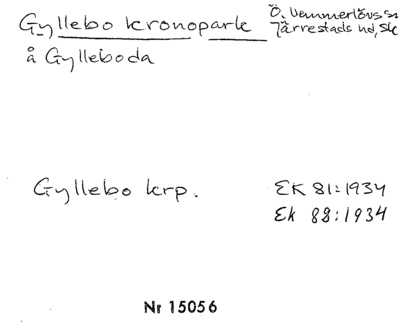 Gyllebo kronopark
Ö. Vemmerlövs sn
Järrestads hd, Sk
å Gylleboda
Gyllebo krp.
EK 81:1934
Ek 88:1934
Nr 15056